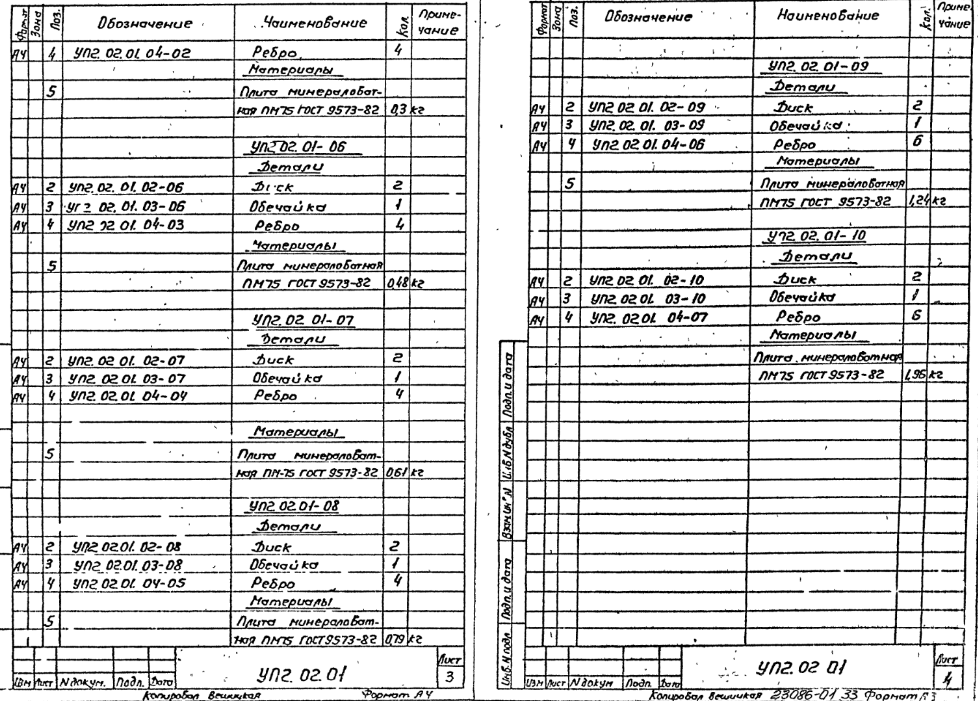 Формат Зона Поз. Обозначение Наименование Кол. Примечание
А4 4 УП2. 02. 01. 04-02 Ребро 4
Материалы
5 Плита минераловат-
ная ПМ75 ГОСТ 9573-82 0,3 кг
УП2. 02. 01-06
Детали
А4 2 УП2. 02. 01. 02-06 Диск 2
А4 3 УП2 02. 01. 03-06 Обечайка 1
А4 4 УП2 02 01. 04-03 Ребро 4
Материалы
5 Плита минераловатная
ПМ75 ГОСТ 9573-82 0,48 кг
УП2. 02 01-07
Детали
А4 2 УП2. 02 01. 02-07 Диск 2
А4 3 УП2 02 01. 03-07 Обечайка 1
А4 4 УП2 02 01. 04-04 Ребро 4
Материалы
5 Плита минераловат-
ная ПМ-75 ГОСТ 9573-82 0,61 кг
УП2 02 01-08
Детали
А4 2 УП2 02 01. 02-08 Диск 2
А4 3 УП2 02 01. 03-08 Обечайка 1
А4 4 УП2 02 01. 04-05 Ребро 4
Материалы
5 Плита минераловат-
ная ПМ75 ГОСТ 9573-82 0,79 кг
Изм Лист N докум. Подп. Дата УП2. 02 01 Лист 3
Копировал Вешицкая Формат А4
Формат Зона Поз. Обозначение Наименование Кол. Примечание
УП2. 02. 01-09
Детали
А4 2 УП2 02 01. 02-09 Диск 2
А4 3 УП2. 02. 01. 03-09 Обечайка 1
А4 4 УП2 02. 01 04-06 Ребро 6
Материалы
5 Плита минераловатная
ПМ75 ГОСТ 9573-82 1,24 кг
УП2. 02. 01-10
Детали
А4 2 УП2 02 01. 02-10 Диск 2
А4 3 УП2. 02 01. 03-10 Обечайка 1
А4 4 УП2. 02 01. 04-07 Ребро 6
Материалы
Плита минераловатная
ПМ75 ГОСТ 9573-82 1,96 кг
Инв. N подл Подп. и дата Взам инв N Инв. N дубл Подп. и дата
Изм Лист N докум Подп. Дата УП2. 02 01 Лист 4
Копировал Вешицкая 23086-01 33 Формат А3